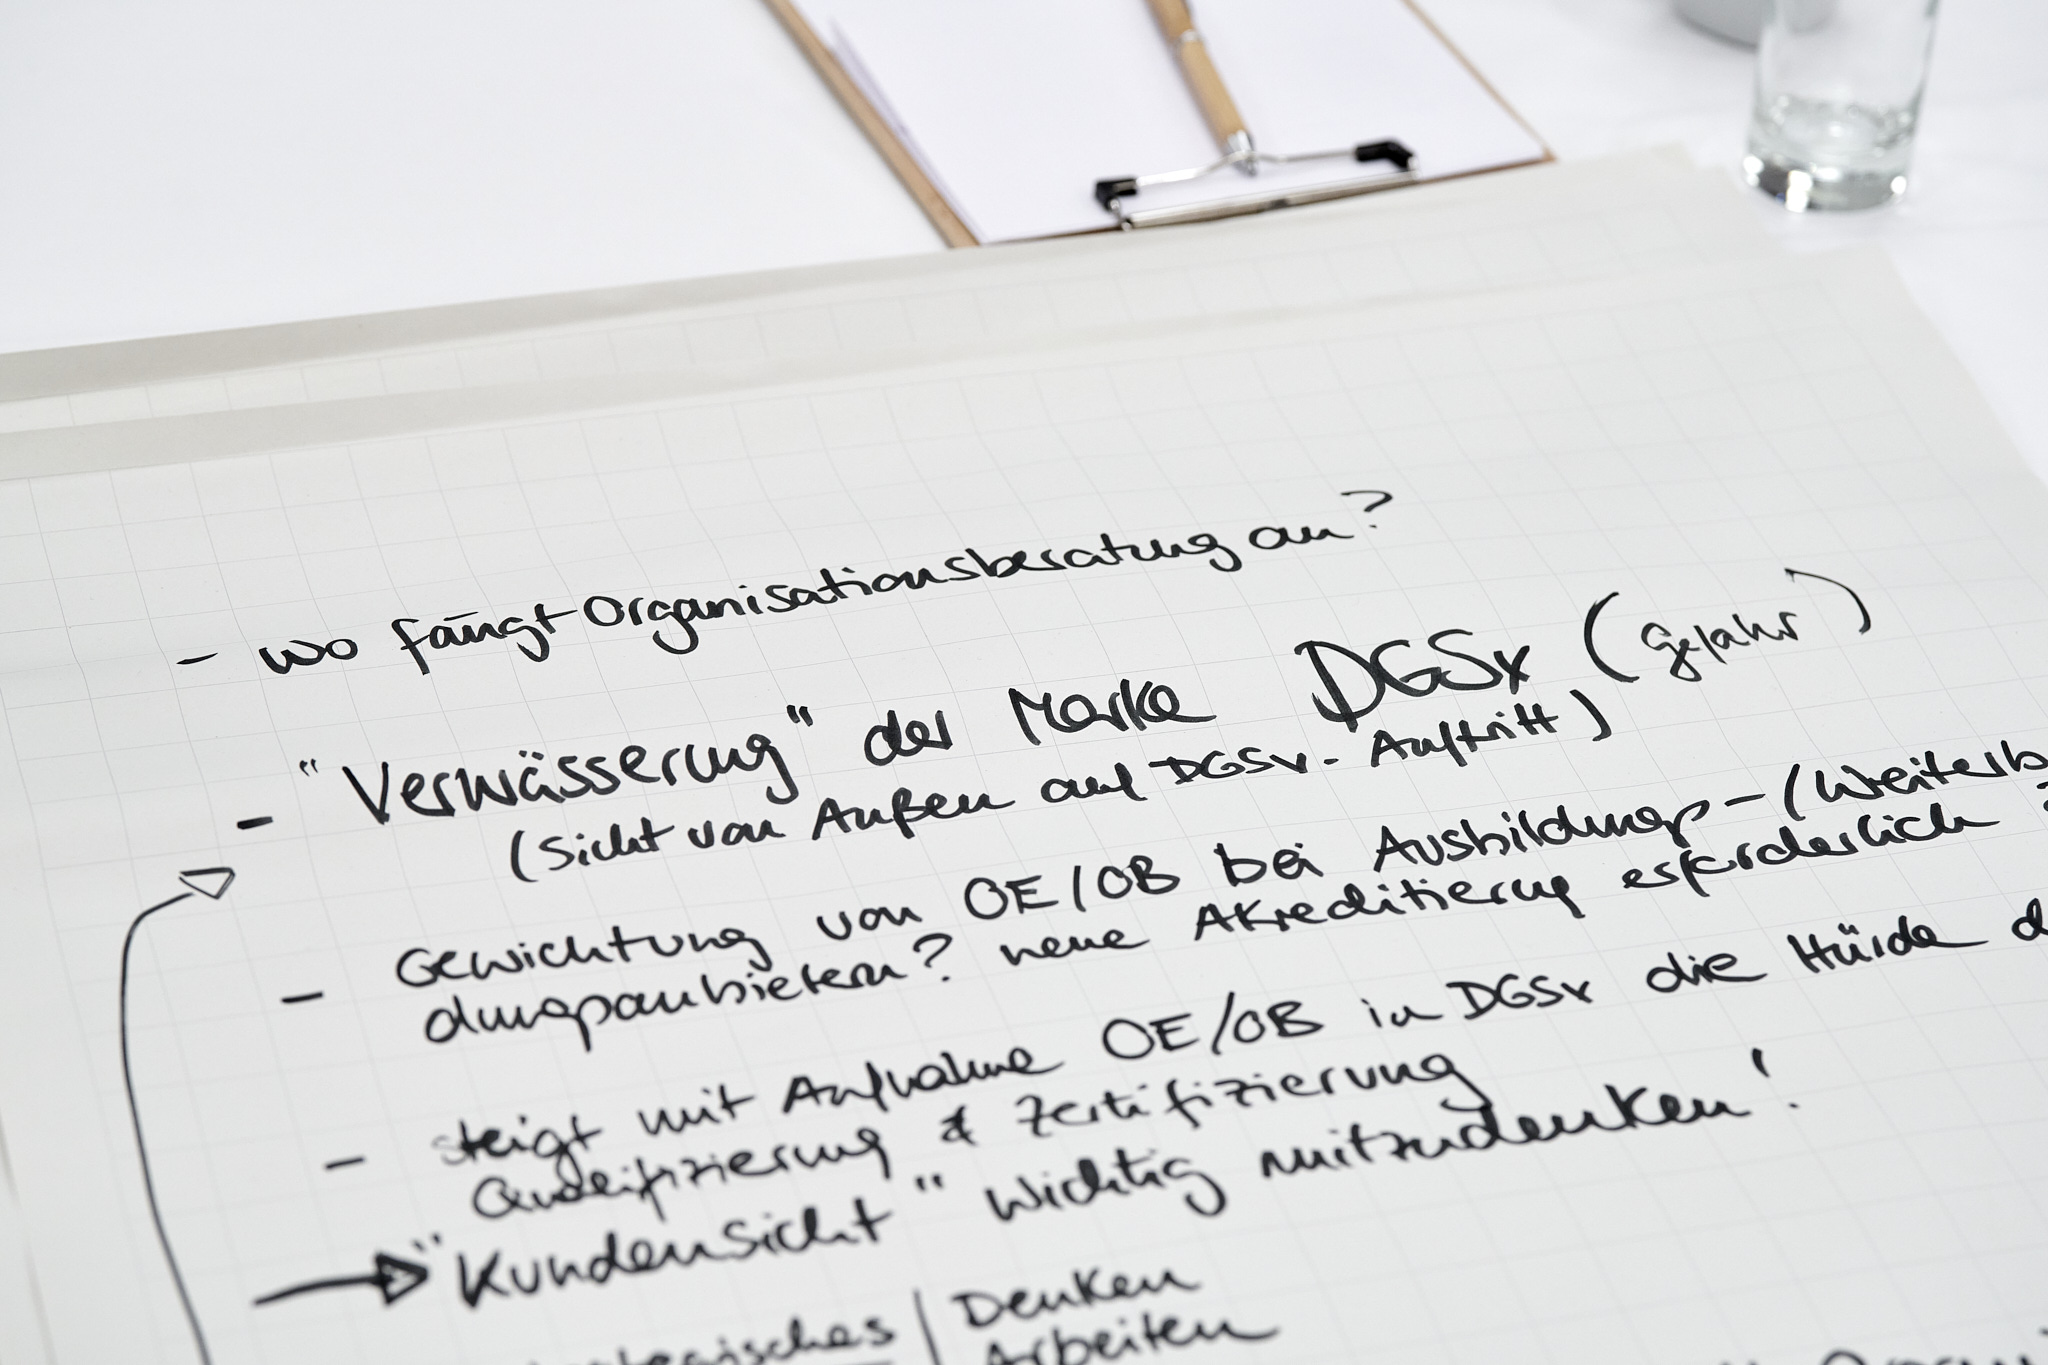 - wo fängt Organisationsberatung an?
- "Verwässerung" der Marke DGSv (Gefahr)
(Sicht von Außen auf DGSv-Auftritt)
- Gewichtung von OE/OB bei Ausbildungs-(Weiterb
dungsanbietern? neue Akreditierung erforderlich ?
- steigt mit Aufnahme OE/OB in DGSv die Hürde d
Qualifizierung & Zertifizierung
→ "Kundensicht" wichtig mitzudenken!
| Denken
Arbeiten